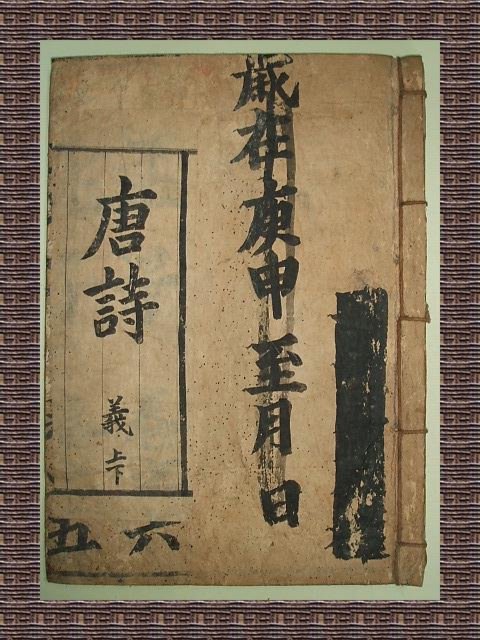 歲在庚申至月日
唐詩
義上下
六五